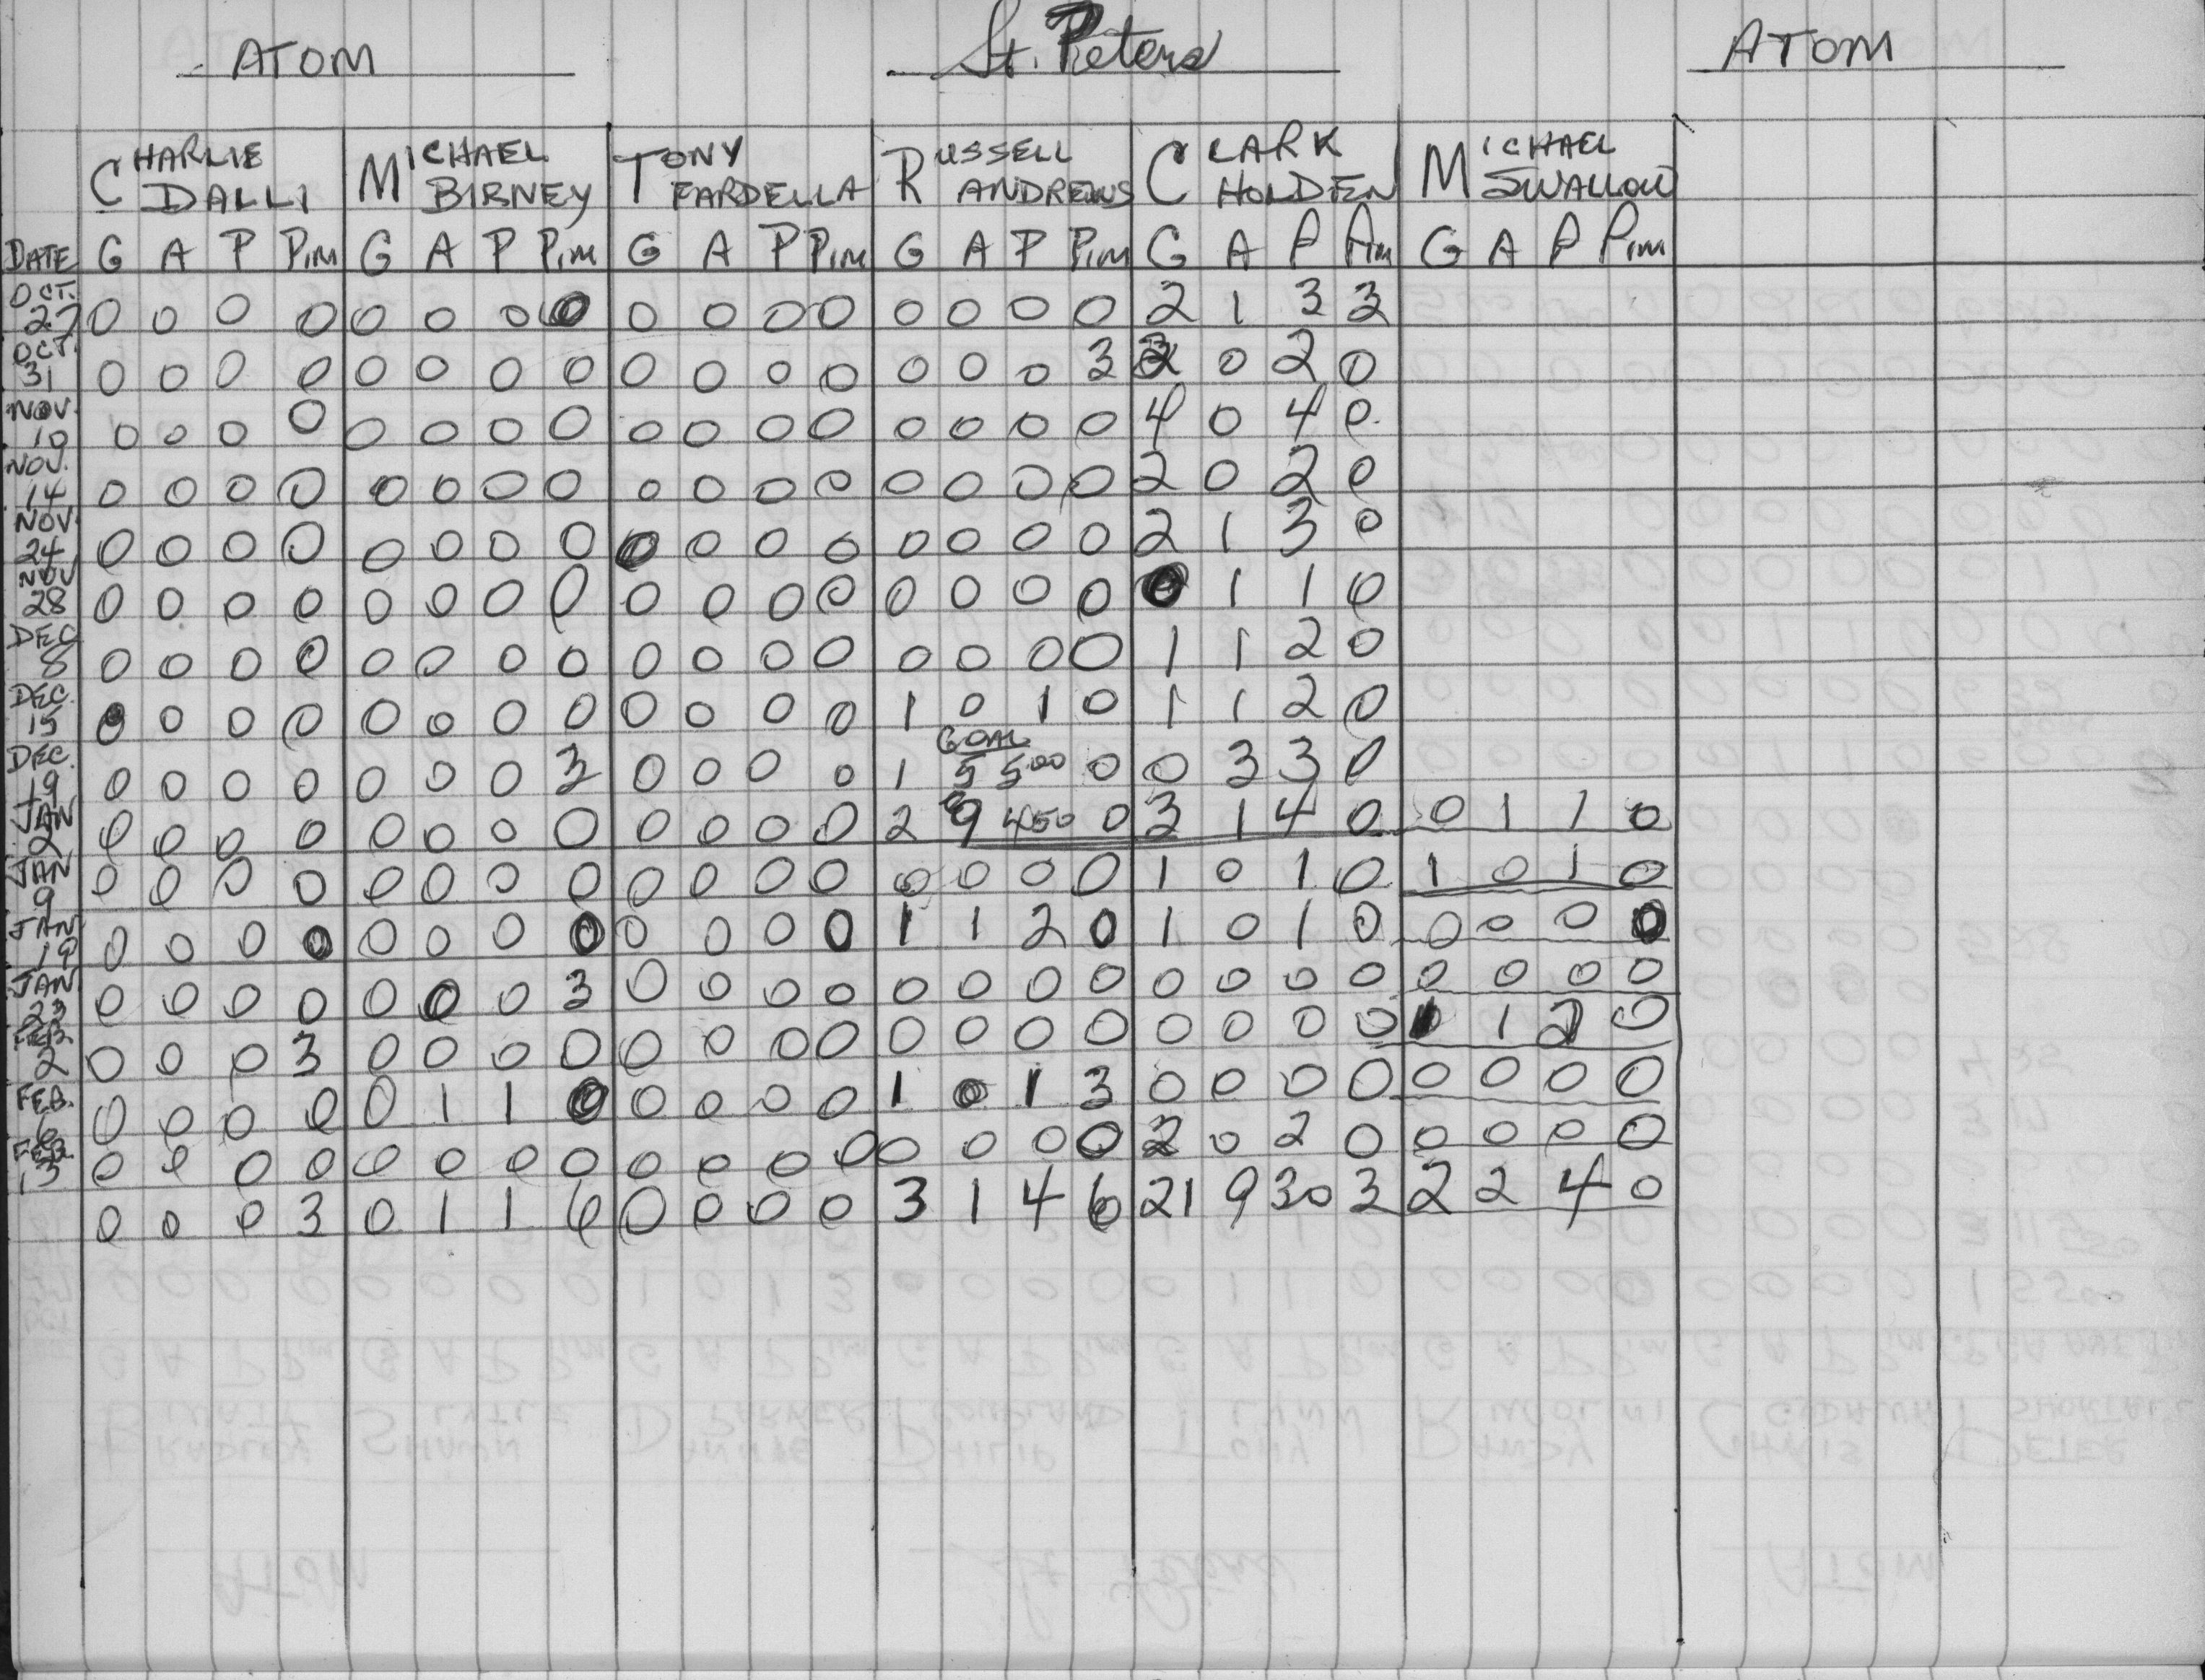 ATOM St. Peters ATOM
CHARLIE DALLI MICHAEL BIRNEY TONY FARDELLA RUSSELL ANDREWS CLARK HOLDEN MICHAEL SWALLOW
DATE G A P Pim G A P Pim G A P Pim G A P Pim G A P Pim G A P Pim
OCT. 27 0 0 0 0 0 0 0 0 0 0 0 0 0 0 0 0 2 1 3 3
OCT. 31 0 0 0 0 0 0 0 0 0 0 0 0 0 0 0 3 2 0 2 0
NOV. 10 0 0 0 0 0 0 0 0 0 0 0 0 0 0 0 0 4 0 4 0
NOV. 14 0 0 0 0 0 0 0 0 0 0 0 0 0 0 0 0 2 0 2 0
NOV. 24 0 0 0 0 0 0 0 0 0 0 0 0 0 0 0 0 2 1 3 0
NOV 28 0 0 0 0 0 0 0 0 0 0 0 0 0 0 0 0 0 1 1 0
DEC 8 0 0 0 0 0 0 0 0 0 0 0 0 0 0 0 0 1 1 2 0
DEC. 15 0 0 0 0 0 0 0 0 0 0 0 0 1 0 1 0 1 1 2 0
GOAL
DEC. 19 0 0 0 0 0 0 0 3 0 0 0 0 1 5 5 00 0 0 3 3 0
JAN 2 0 0 0 0 0 0 0 0 0 0 0 0 2 9 450 0 3 1 4 0 0 1 1 0
JAN 9 0 0 0 0 0 0 0 0 0 0 0 0 0 0 0 0 1 0 1 0 1 0 1 0
JAN 19 0 0 0 0 0 0 0 0 0 0 0 0 1 1 2 0 1 0 1 0 0 0 0 0
JAN 23 0 0 0 0 0 0 0 3 0 0 0 0 0 0 0 0 0 0 0 0 0 0 0 0
FEB. 2 0 0 0 3 0 0 0 0 0 0 0 0 0 0 0 0 0 0 0 0 1 1 2 0
FEB. 6 0 0 0 0 0 1 1 0 0 0 0 0 1 0 1 3 0 0 0 0 0 0 0 0
FEB. 13 0 0 0 0 0 0 0 0 0 0 0 0 0 0 0 0 2 0 2 0 0 0 0 0
0 0 0 3 0 1 1 6 0 0 0 0 3 1 4 6 21 9 30 3 2 2 4 0